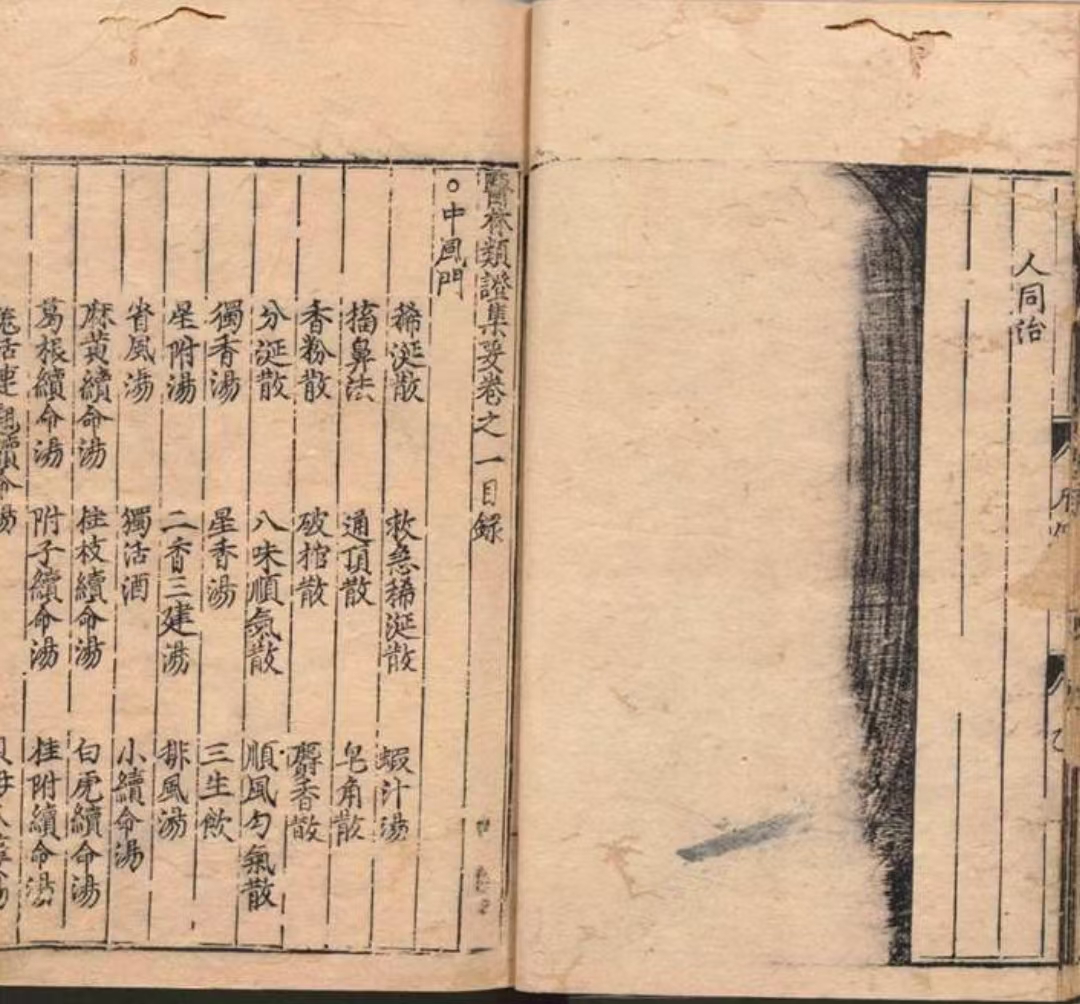 人同治
醫林類證集要卷之一目録
○中風門
稀涎散 救急稀涎散 蝦汁湯
搐鼻法 通頂散 皂角散
香粉散 破棺散 麝香散
分涎散 八味順氣散 順風勻氣散
獨香湯 星香湯 三生飲
星附湯 二香三建湯 排風湯
省風湯 獨活酒 小續命湯
麻黄續命湯 桂枝續命湯 白虎續命湯
葛根續命湯 附子續命湯 桂附續命湯